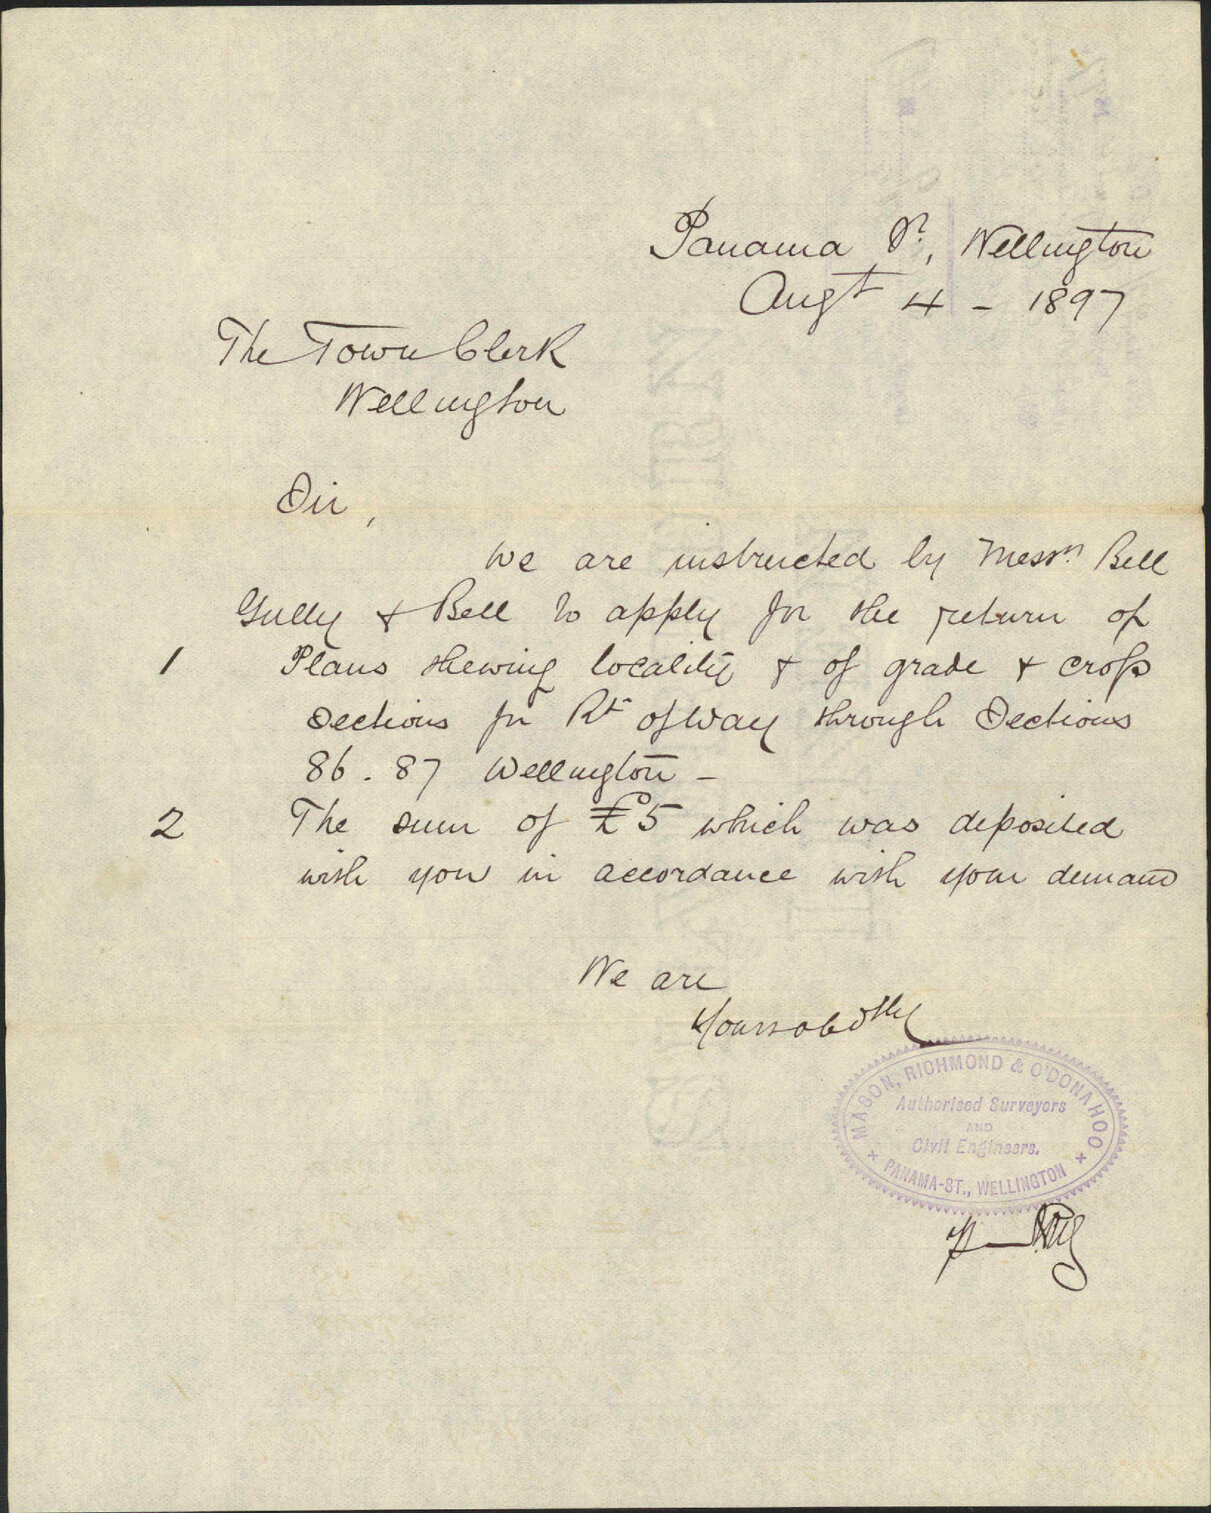 Panama St., Wellington
Augt 4 - 1897
The Town Clerk
Wellington
Sir,
We are instructed by Messrs Bell
Gully & Bell to apply for the return of
1 Plans shewing locality & of grade & cross
sections for Rt of Way through Sections
86. 87 Wellington -
2 The sum of £5 which was deposited
with you in accordance with your demand
We are
Yours obdtly
MASON, RICHMOND & O'DONAHOO
Authorised Surveyors
AND
Civil Engineers.
PANAMA-ST., WELLINGTON